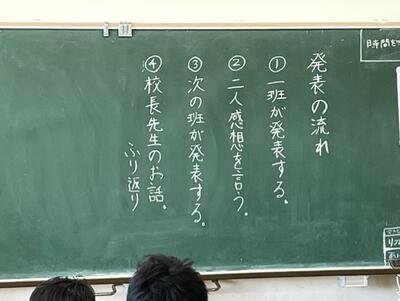 発表の流れ
①一班が発表する。
②二人感想を言う。
③次の班が発表する。
④校長先生のお話。
ふり返り